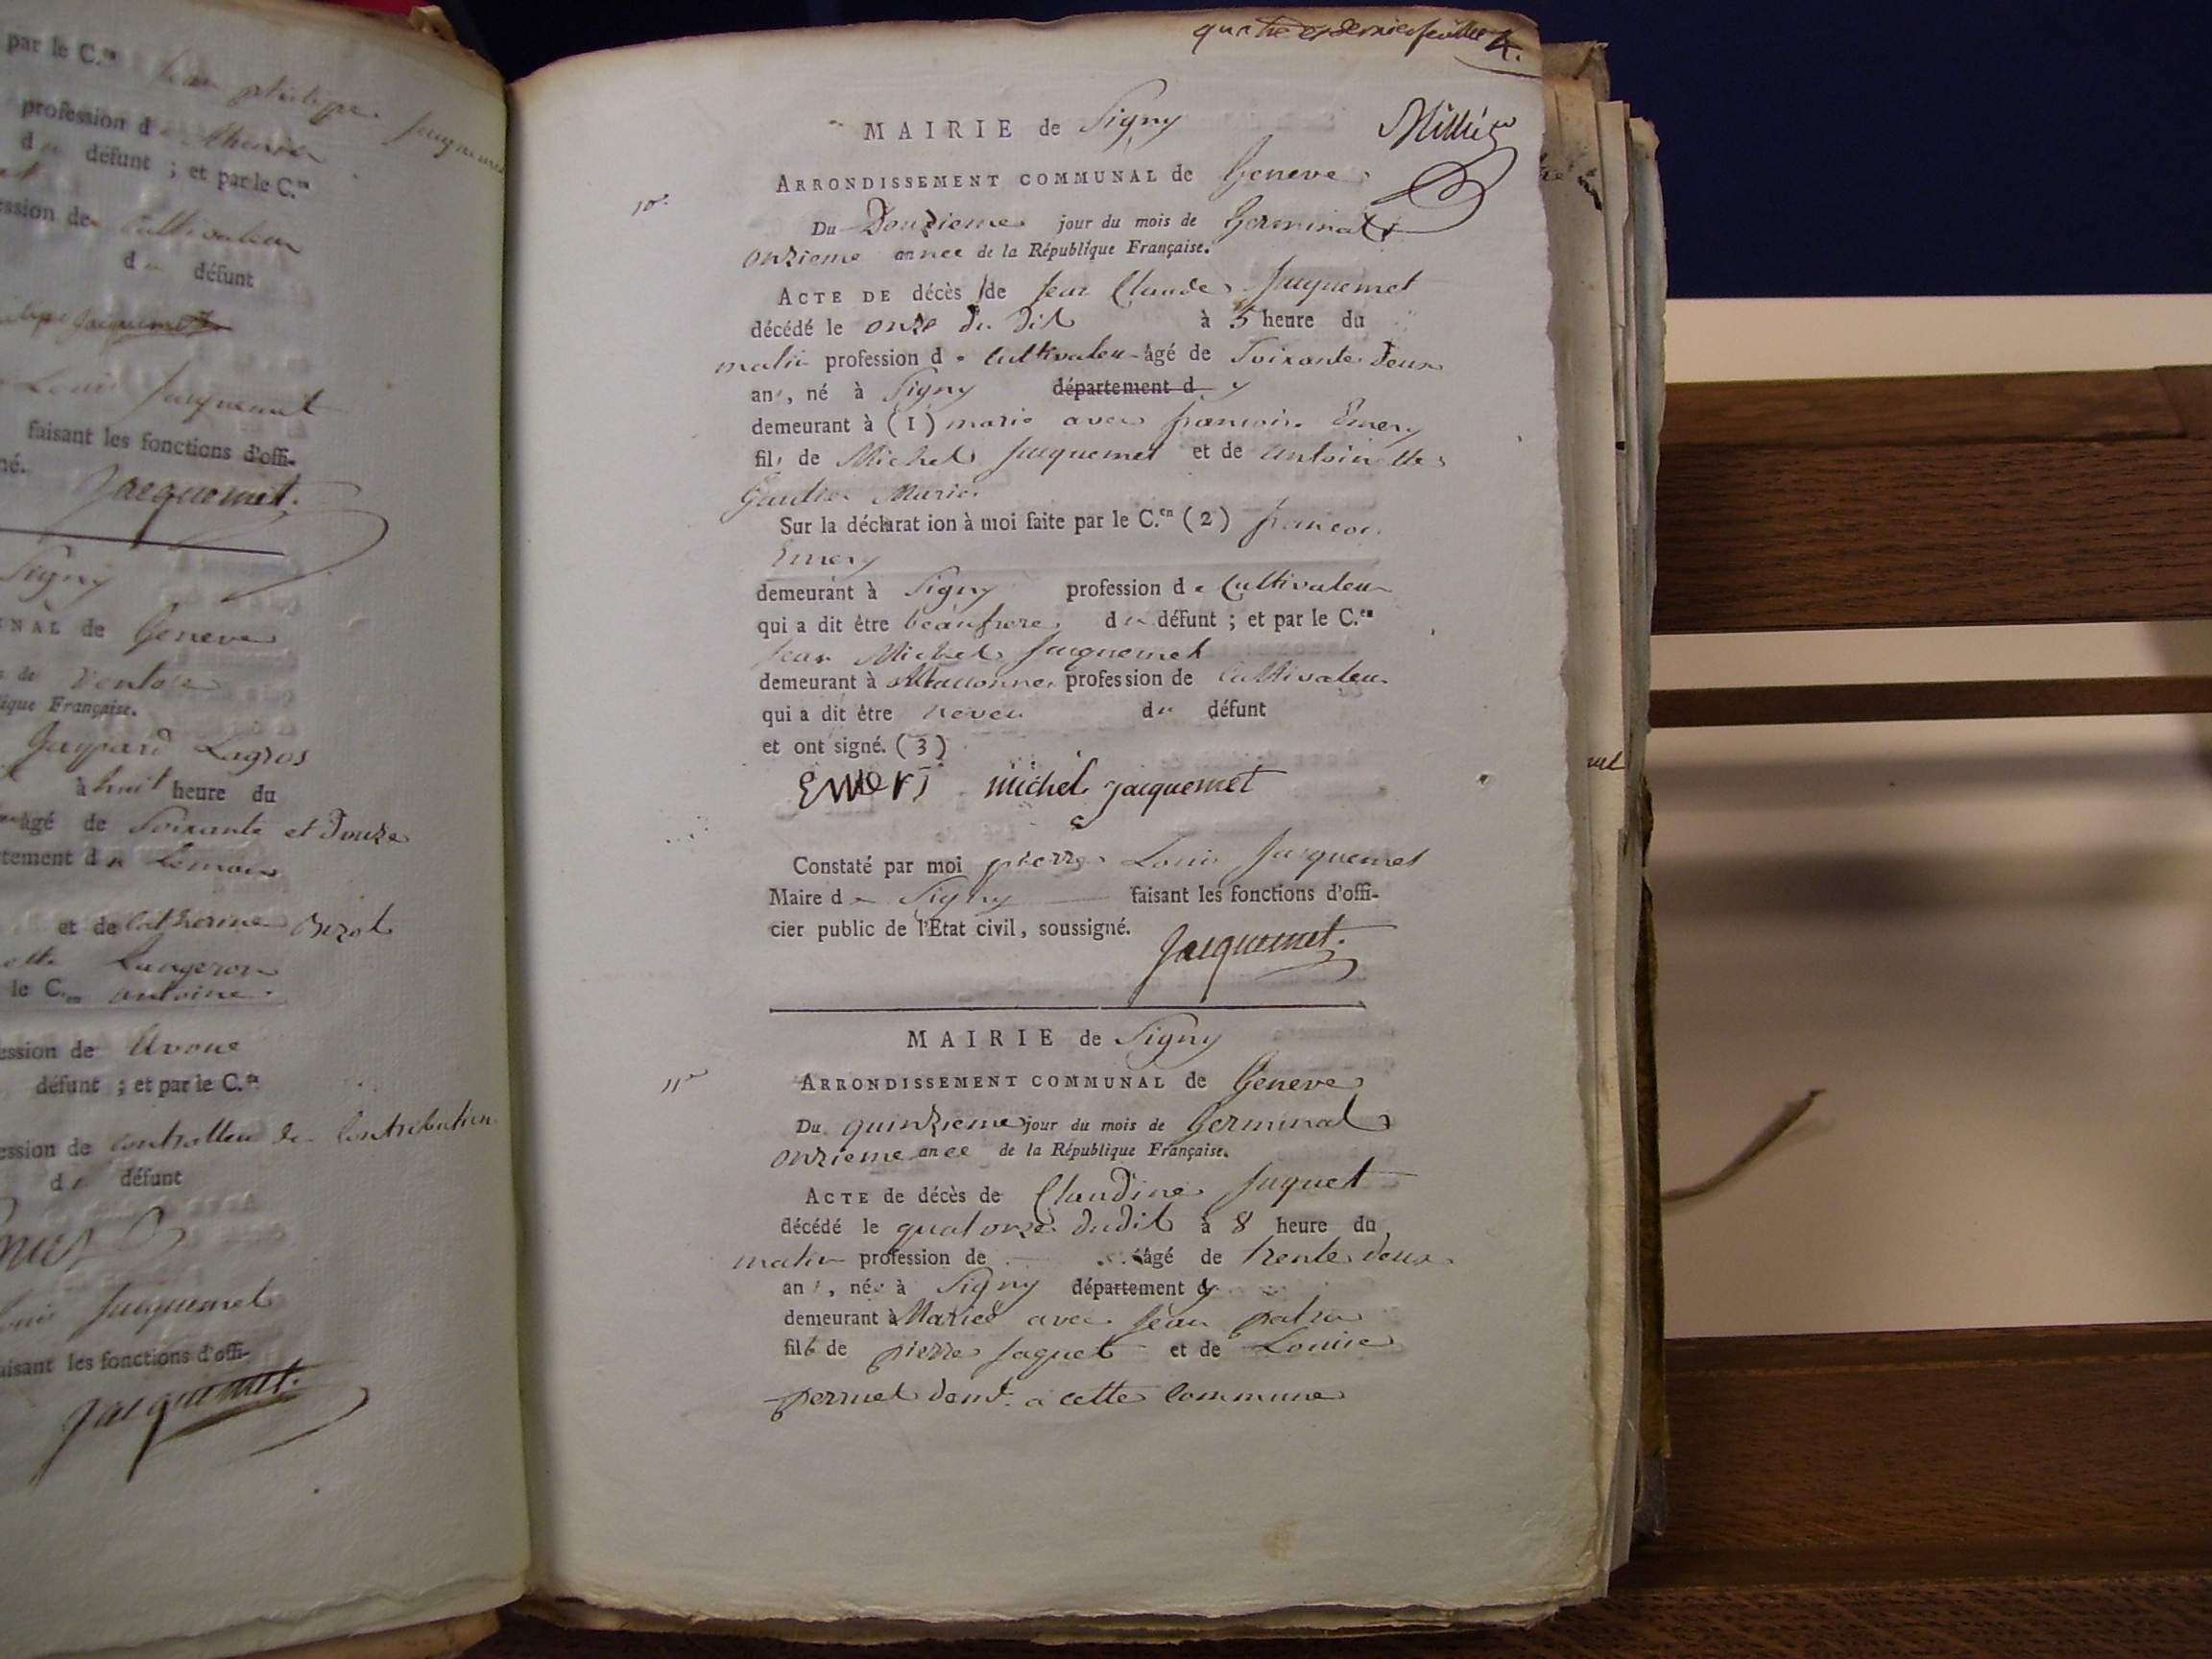 par le C.en jean philippe Jacquemet
profession d
du défunt ; et par le C.en
ession de Cultivateur
du défunt
Jacquemet
Louis Jacquemet
faisant les fonctions d'offi-
né.
Jacquemet.
Signy
NAL de Geneve
de Ventose
ique Française.
Gaspard Lagros
à huit heure du
âgé de Soixante et Douze
tement du Leman
et de Catherine Bizot
Langeron
le C.en antoine
ession de Avoué
défunt ; et par le C.en
ession de Controlleur de Contribution
du défunt
Louis Jacquemet
aisant les fonctions d'offi-
Jacquemet.
quatre et dernier feuillet 4.
MAIRIE de Signy
Milliet
ARRONDISSEMENT COMMUNAL de Geneve
10e
Du Douzieme jour du mois de Germinal
onzieme annee de la République Française.
ACTE DE décès de Jean Claude Jaquemet
décédé le onze du dit à 5 heure du
matin profession de Cultivateur âgé de Soixante Deux
ans, né à Signy département d y
demeurant à (1) marié avec francoise Emery
fils de Michel Jaquemet et de Antoinette
Gautier Mariés
Sur la déclarat ion à moi faite par le C.en (2) francois
Emery
demeurant à Signy profession de Cultivateur
qui a dit être beaufrere du défunt ; et par le C.en
Jean Michel Jaquemet
demeurant à Maconnex profession de Cultivateur
qui a dit être neveu du défunt
et ont signé. (3)
EMERI michel jacquemet
Constaté par moi pierre Louis Jacquemet
Maire de Signy faisant les fonctions d'offi-
cier public de l'Etat civil, soussigné.
Jacquemet.
MAIRIE de Signy
11e
ARRONDISSEMENT COMMUNAL de Geneve
Du quinzieme jour du mois de Germinal
onzieme anee de la République Française.
ACTE de décès de Claudine Juquet
décédé le quatorze dudit à 8 heure du
matin profession de âgé de trente deux
ans, née à Signy département d y
demeurant à Mariée avec Jean
fille de pierre Jaquet et de Louise
pernet demt. a cette Commune